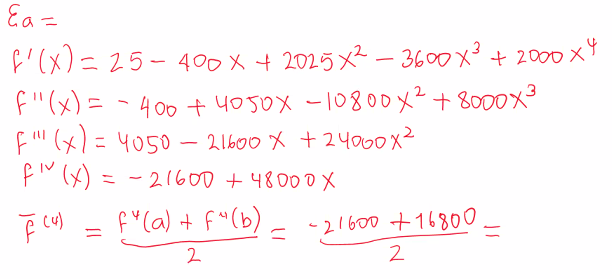 Ea =
f'(x) = 25 - 400x + 2025x² - 3600x³ + 2000x⁴
f''(x) = - 400 + 4050x - 10800x² + 8000x³
f'''(x) = 4050 - 21600x + 24000x²
f^IV(x) = - 21600 + 48000x
f̅^(4) = (f⁴(a) + f⁴(b))/2 = (-21600 + 16800)/2 =